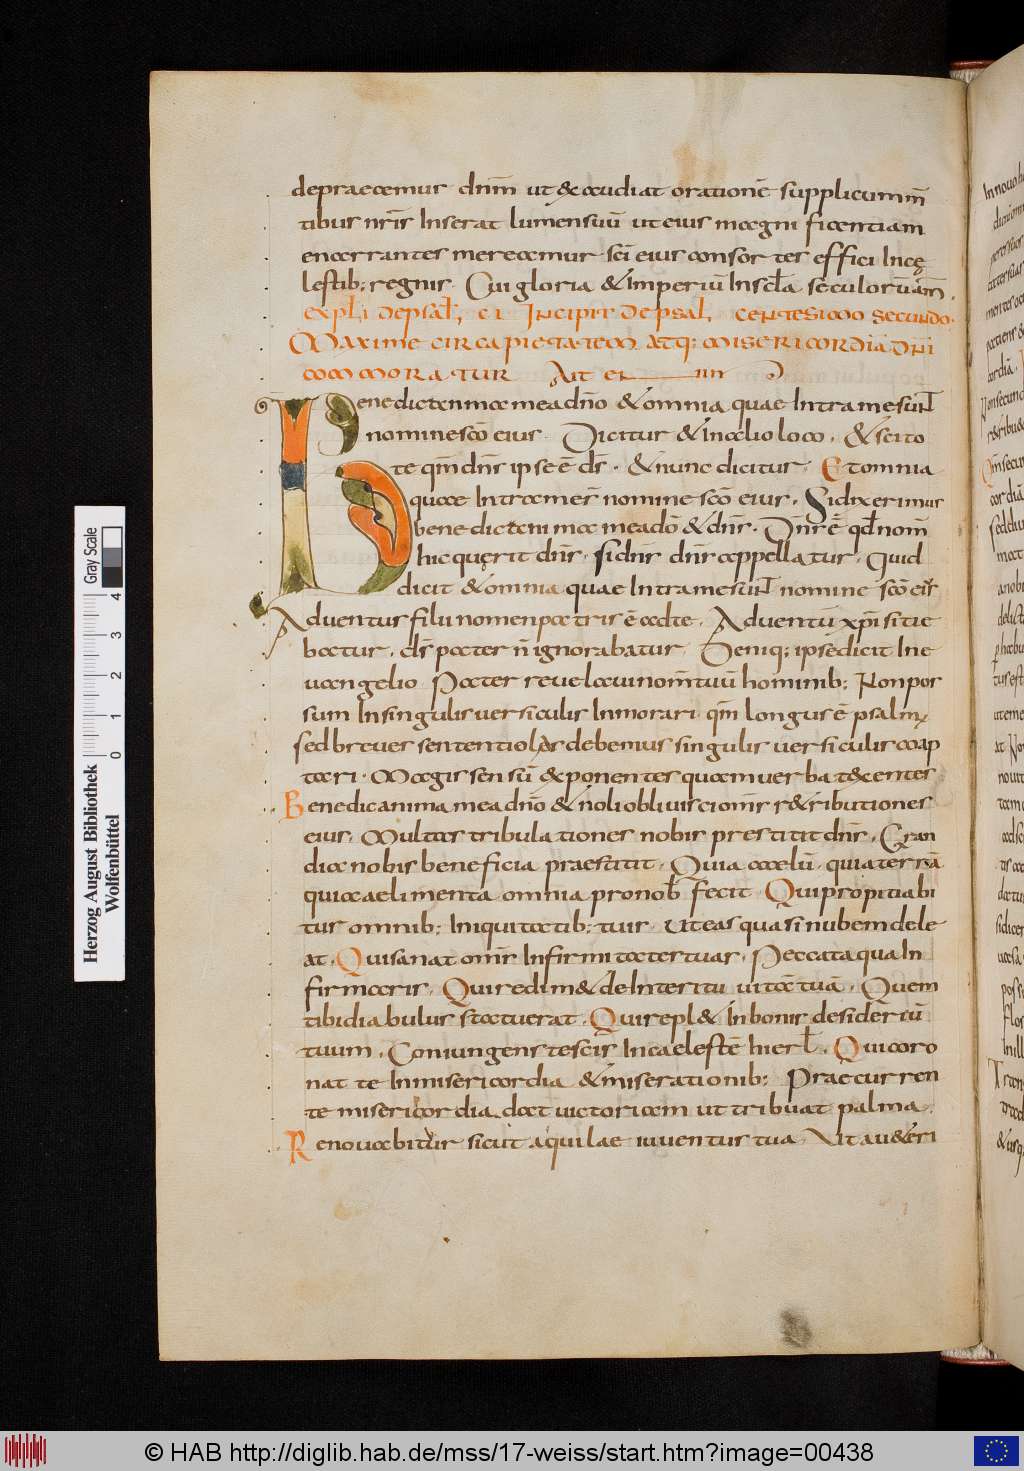 depraecemur dnm̄ ut & exaudiat orationē supplicum m̄
tibus nr̄is Inserat lumen suū ut eius magni ficentiam
enarrantes mereamur sc̄i eius consor tes effici Incę
lestib; regnis. Cui gloria & Imperiū In scl̄a seculorū am̄.
expl̄i de psal̄, ci Incipit De psal̄, centesimo secundo.
Maxime circa pietatem atq; misericordiā dn̄i
commoratur
Benedic anima mea dn̄o & omnia quae Intra me sunt
nomine sc̄o eius. Dicitur & In alio loco. & scito
te qm̄ dn̄s ipse ē ds̄. & nunc dicitur. Et omnia
quae Intra me s̄ nomine sc̄o eius. Si dixerimus
benedic anima mea dō & dn̄s.
hic quęrit dn̄s. si dn̄s dn̄s appellatur. Quid
dicit & omnia quae Intra me sunt nomine sc̄o eis̄
Adventus filii nomen patris ē ad te. Adventū xp̄i sitie
batur. ds̄ pater n̄ ignorabatur. Deniq; ipse dicit Ine
uangelio Pater revelavi nom̄ tuū hominib; Non pos
sum In singulis versiculis Inmorari. qm̄ longus ē psalmꝰ
sed breves sententiolas debemus singulis versiculis coap
tari. Magis sensū exponentes quam verba texentes
Benedic anima mea dn̄o & noli oblivisci omn̄s r&ributiones
eius. Multas tribulationes nobis prestitit dn̄s. Gran
dia nobis beneficia praestitit. Quia caelū. quia terrā
quia caeli menta omnia pro nob̄ fecit. Qui propitiabi
tur omnib; Iniquitatib; tuis. Ut eas quasi nubem dele
at. Qui sanat omn̄s Infirmitates tuas. Peccata qua In
firmaris. Qui redim& de Interitu vitā tuā. Quem
tibi diabulus statuerat. Qui repl& In bonis desideriū
tuum. Coniungens te sc̄is In caelestē hierl̄. Qui coro
nat te In misericordia & miserationib; Praecurren
te misericordia dat victoriam ut tribuat palma.
Renovabitur sicut aquilae iuventus tua. Ut au&eri
Herzog August Bibliothek
Wolfenbüttel
Gray Scale
0 1 2 3 4
© HAB http://diglib.hab.de/mss/17-weiss/start.htm?image=00438